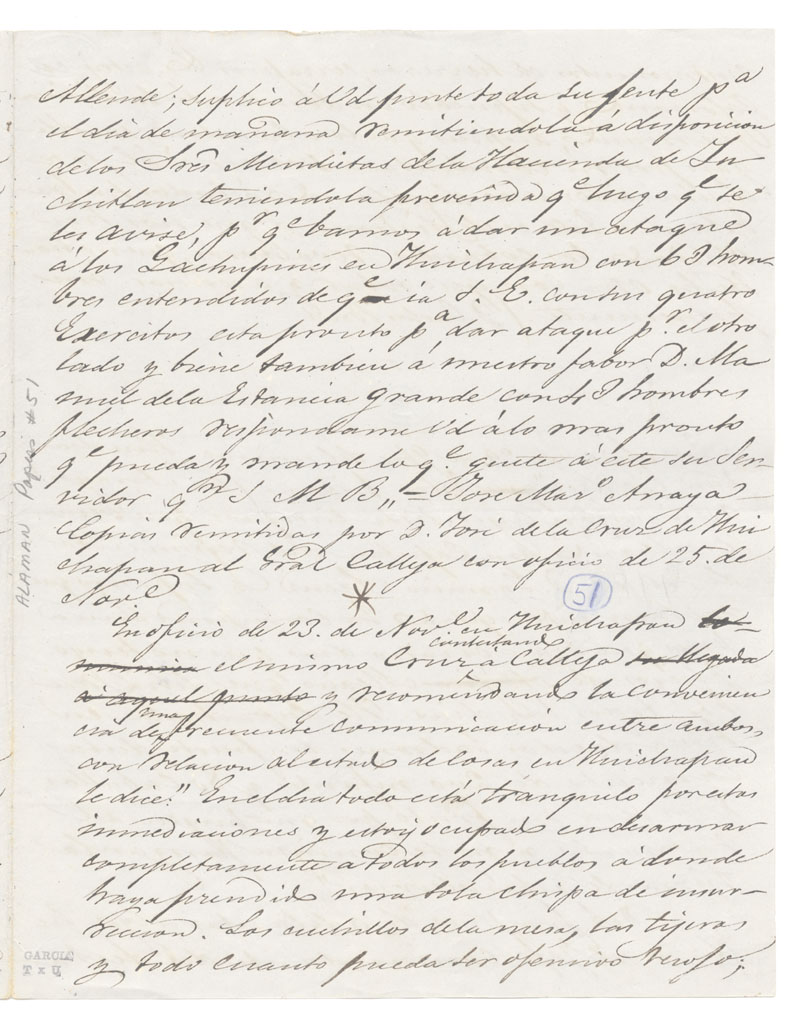 Allende; suplico á Vd punte toda su Jente pa
el dia de mañana remitiendola á disposicion
de los Sres Mendietas de la Hacienda de Ju
chitlan teniendola prevenida qe luego qe se
les avise, pr qe bamos á dar un ataque
á los Gachupines en Huichapan con 6 J hom-
bres entendidos de qe ia S. E. con sus quatro
Exercitos esta pronto pa dar ataque pr. el otro
lado y biene tambien á nuestro fabor D. Ma
nuel de la Estancia grande con J hombres
flecheros respondame Vd á lo mas pronto
qe pueda y mande lo qe guste á este su Ser-
vidor qn S M B,, = Jose Maro Anaya
Copias remitidas por D. José de la Cruz de Hui
chapan al Gral Calleja con oficio de 25. de
Nove
51
En oficio de 23. de Nove en Huichapan
contestando
el mismo Cruz á Calleja su llegada
á aquel punto y recomendando la convenien
una
cia de frecuente comunicación entre ambos,
con relacion al estado de cosas en Huichapan
le dice: "En el dia todo está tranquilo por estas
inmediaciones y estoy ocupado en desarmar
completamente a todos los pueblos á donde
haya prendido una sola chispa de insur-
reccion. Los cuchillos de la mesa, las tijeras
y todo cuanto pueda ser ofensivo recojo;
ALAMAN Papers #51
GARCIA
T x U